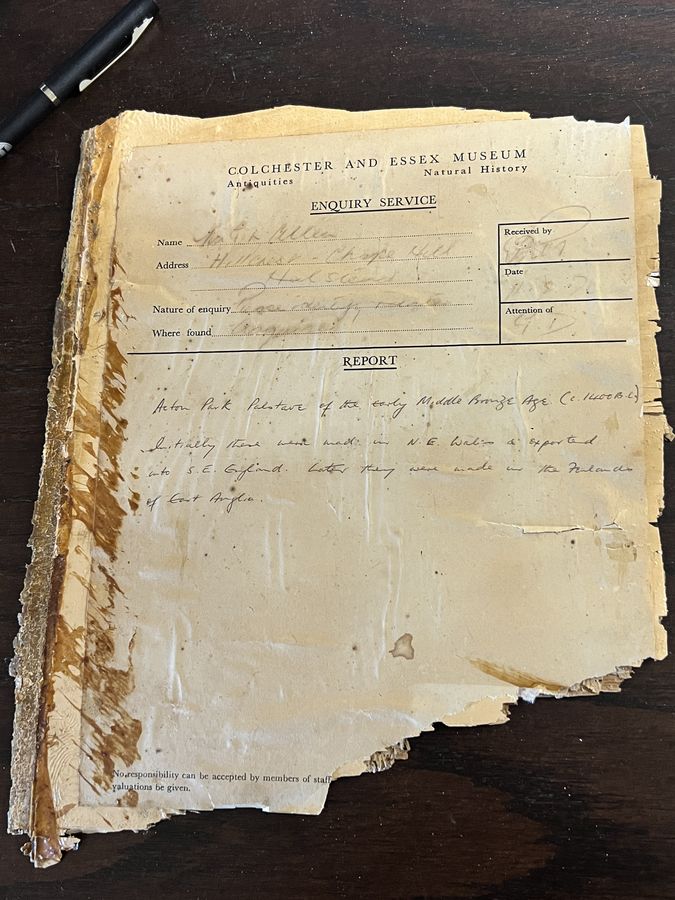 COLCHESTER AND ESSEX MUSEUM
Antiquities Natural History
ENQUIRY SERVICE
Name
Address Hillcrest - Chapel Hill
Halstead
Nature of enquiry Please identify
Where found
Received by
Date
Attention of
REPORT
Acton Park Palstave of the early Middle Bronze Age (c. 1400 B.C)
Initially these were made in N.E. Wales & exported
into S.E. England. Later they were made in the Fenlands
of East Anglia.
No responsibility can be accepted by members of staff
valuations be given.